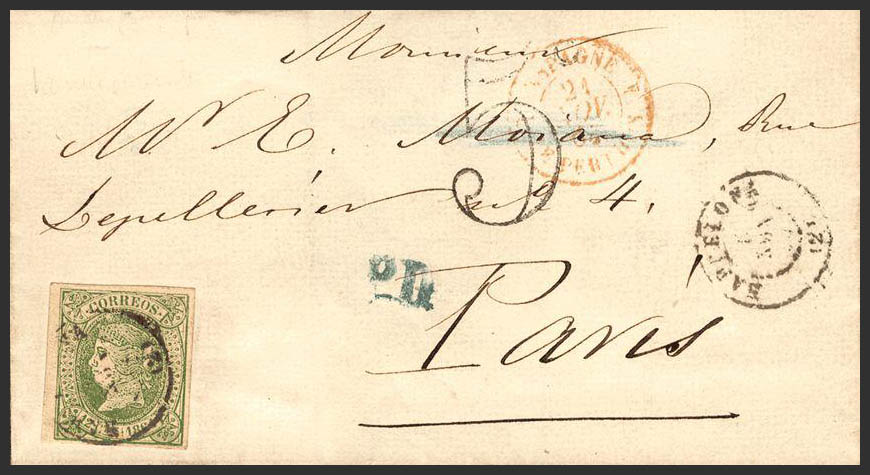 Monsieur
Mr E. Morana, Rue
Lepellerier no 4.
Paris
5
ESPAGNE
21
NOV.
64
PERTH
BARCELONA
PD
CORREOS